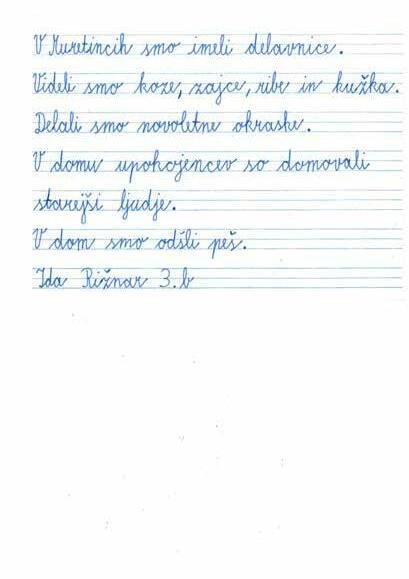 V Muretincih smo imeli delavnice.
Videli smo koze, zajce, ribe in kužka.
Delali smo novoletne okraske.
V domu upokojencev so domovali
starejši ljudje.
V dom smo odšli peš.
Ida Rižnar 3.b